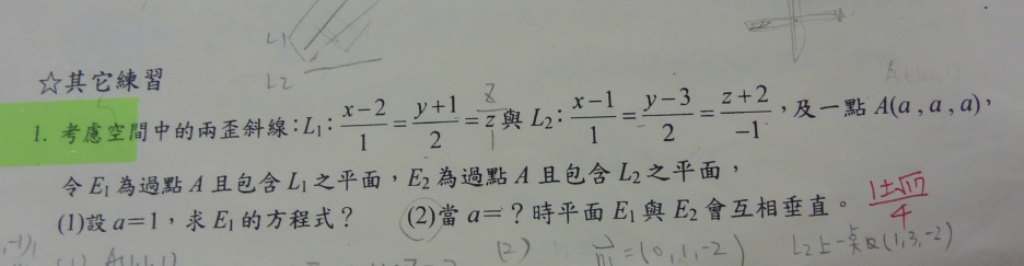 L1
L2
☆其它練習
1. 考慮空間中的兩歪斜線：L₁：(x−2)/1 = (y+1)/2 = z 與 L₂：(x−1)/1 = (y−3)/2 = (z+2)/−1，及一點 A(a , a , a)，
z/1
令 E₁ 為過點 A 且包含 L₁ 之平面，E₂ 為過點 A 且包含 L₂ 之平面，
(1)設 a＝1，求 E₁ 的方程式？ (2)當 a＝？時平面 E₁ 與 E₂ 會互相垂直。 (1±√17)/4
(2) = (0,1,-2) L2上一点 (1,3,-2)